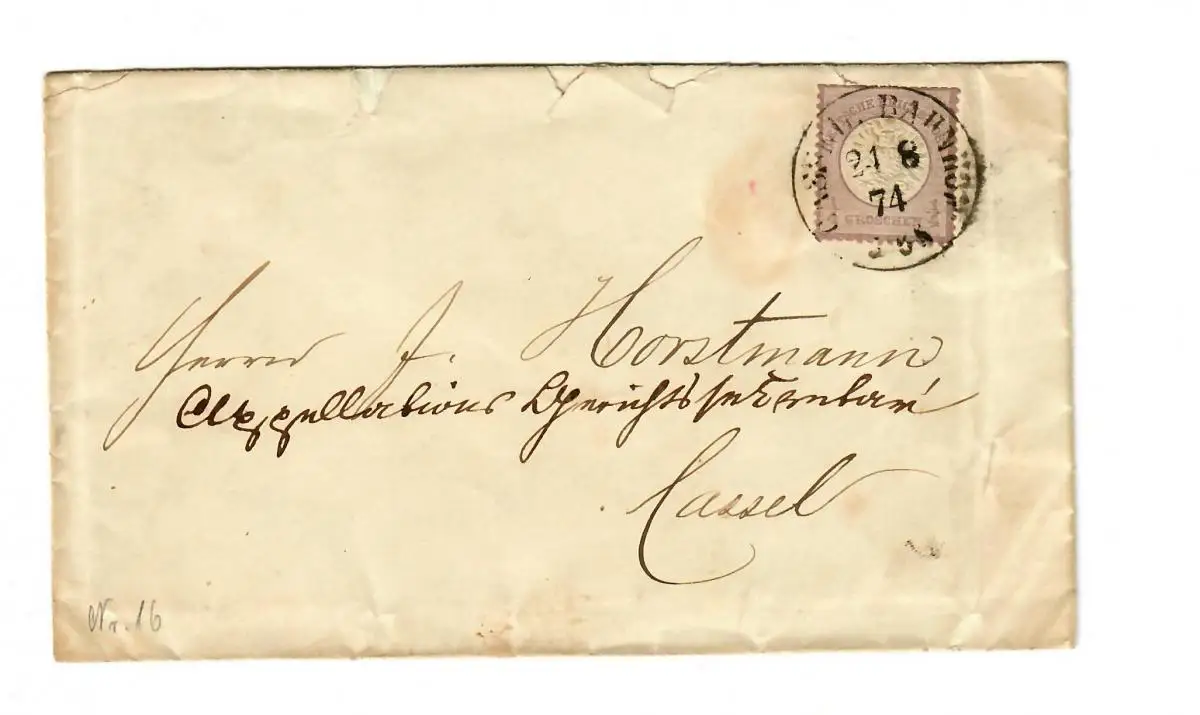 CASSEL BAHNHOF
21 8
74
GROSCHEN
Herrn J. Horstmann
Appellations Gerichtssekretair
Cassel
Nr. 16